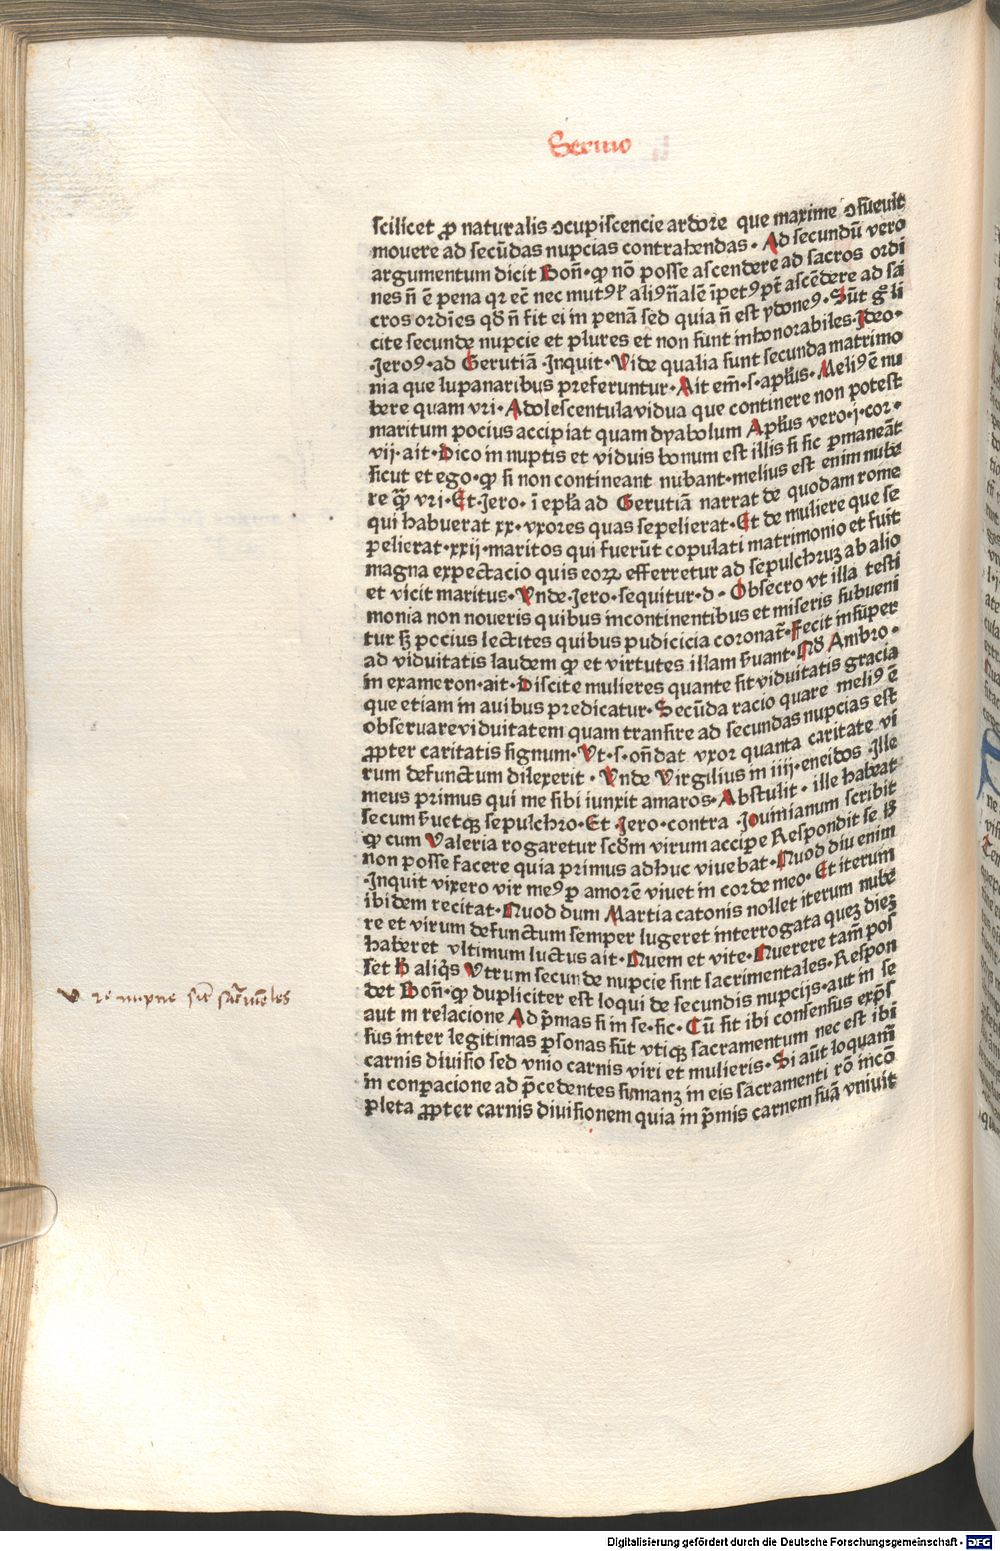 Sermo
scilicet ꝓ naturalis ↄcupiscencie ardore que maxime ↄsueuit
mouere ad secūdas nupcias contrahendas · Ad secundū vero
argumentum dicit Boñ · ꝙ nō posse ascendere ad sacros ordi
nes ñ ē pena qꝛ ec̄ nec ascēdere ad sa
cros ordīes qđ ñ fit ei in penā sed quia ñ est ydoneꝰ · Sūt gͥ li
cite secunde nupcie et plures et non sunt inhonorabiles · Ideo ·
Jeroꝰ · ad Gerutiā · Inquit · Vide qualia sunt secunda matrimo
nia que lupanaribus preferuntur · Ait em̄ · s · apłus · Meliꝰ ē nu
bere quam vri · Adolescentula vidua que continere non potest
maritum pocius accipiat quam dyabolum Apłus vero · j · cor ·
vij · ait · Dico in nuptis et viduis bonum est illis si sic ꝑmaneāt
sicut et ego · ꝙ si non contineant nubant · melius est enim nube
re qͣꝫ vri · Et · Jero · ī epła ad Gerutiā narrat de quodam rome
qui habuerat xx · vxores quas sepelierat · Et de muliere que se
pelierat · xxij · maritos qui fuerūt copulati matrimonio et fuit
magna expectacio quis eoꝝ efferretur ad sepulchruꝫ ab alio
et vicit maritus · Vnde · Jero · sequitur · d · Obsecro vt illa testi
monia non noueris quibus incontinentibus et miseris subueni
tur sꝫ pocius lectites quibus pudicicia coronat᷑ · Fecit insuper
ad viduitatis laudem ꝙ et virtutes illam s̄uant · Nā Ambro ·
in exameron · ait · Discite mulieres quante sit viduitatis gracia
que etiam in auibus predicatur · Secūda racio quare meliꝰ ē
obseruare viduitatem quam transire ad secundas nupcias est
ꝓpter caritatis signum · Vt · s · ondat vxor quanta caritate vi
rum defunctum dilexerit · Vnde Virgilius in iiij · eneidos · Ille
meus primus qui me sibi iunxit amaros · Abstulit · ille habeat
secum s̄uetqꝫ sepulchro · Et · Jero · contra · Jouinianum scribit
ꝙ cum Valeria rogaretur scd̄m virum accipe Respondit se hͦ
non posse facere quia primus adhuc viuebat · Quod diu enim
Inquit vixero vir meꝰ ꝑ amorē viuet in corde meo · Et iterum
ibidem recitat · Quod dum Martia catonis nollet iterum nube
re et virum defunctum semper lugeret interrogata queꝫ dieꝫ
haberet vltimum luctus ait · Quem et vite · Querere tam̄ pos
set hͦ aliqͥs Vtrum secunde nupcie sint sacrimentales · Respon
det Boñ · ꝙ dupliciter est loqui de secundis nupcijs · aut in se
aut in relacione Ad p̄mas si in se · sic · Cū sit ibi consensus exp̄s
sus inter legitimas ꝑsonas sūt vtiqꝫ sacramentum nec est ibi
carnis diuisio sed vnio carnis viri et mulieris · Si aūt loquam̄
in conꝑacione ad p̄cedentes sumanꝫ in eis sacramenti rō incō
pleta ꝓpter carnis diuisionem quia in p̄mis carnem suā vniuit
Digitalisierung gefördert durch die Deutsche Forschungsgemeinschaft - DFG